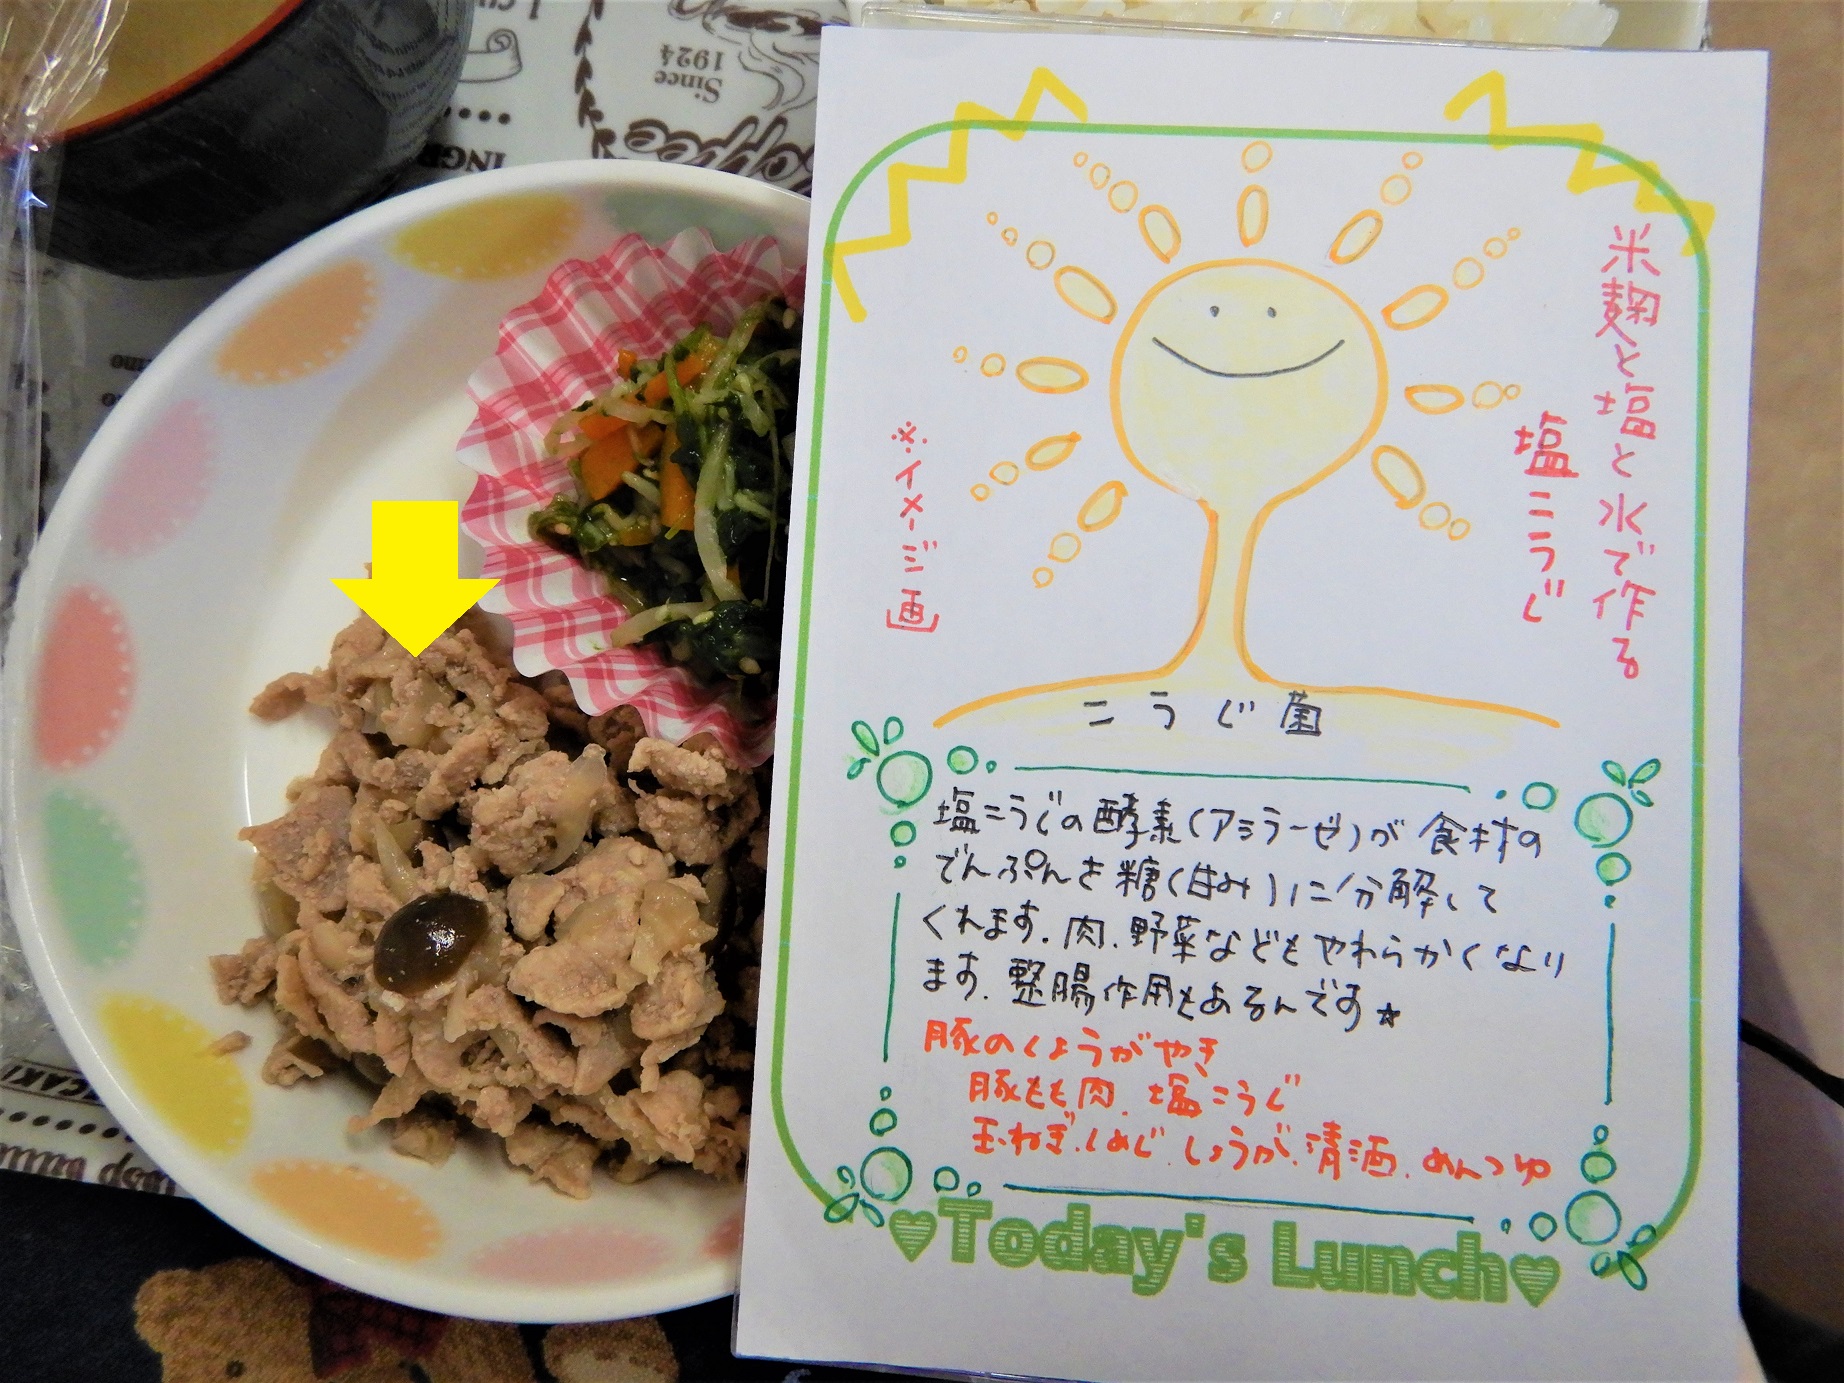 米麹と塩と水で作る
塩こうじ
※イメージ画
こうじ菌
塩こうじの酵素(アミラーゼ)が食材の
でんぷんを糖(甘み)に分解して
くれます.肉.野菜などもやわらかくなり
ます.整腸作用もあるんです☆
豚のしょうがやき
豚もも肉.塩こうじ
玉ねぎ.しめじ.しょうが.清酒.めんつゆ
♥Today's Lunch♥
Since
1924
Coffee